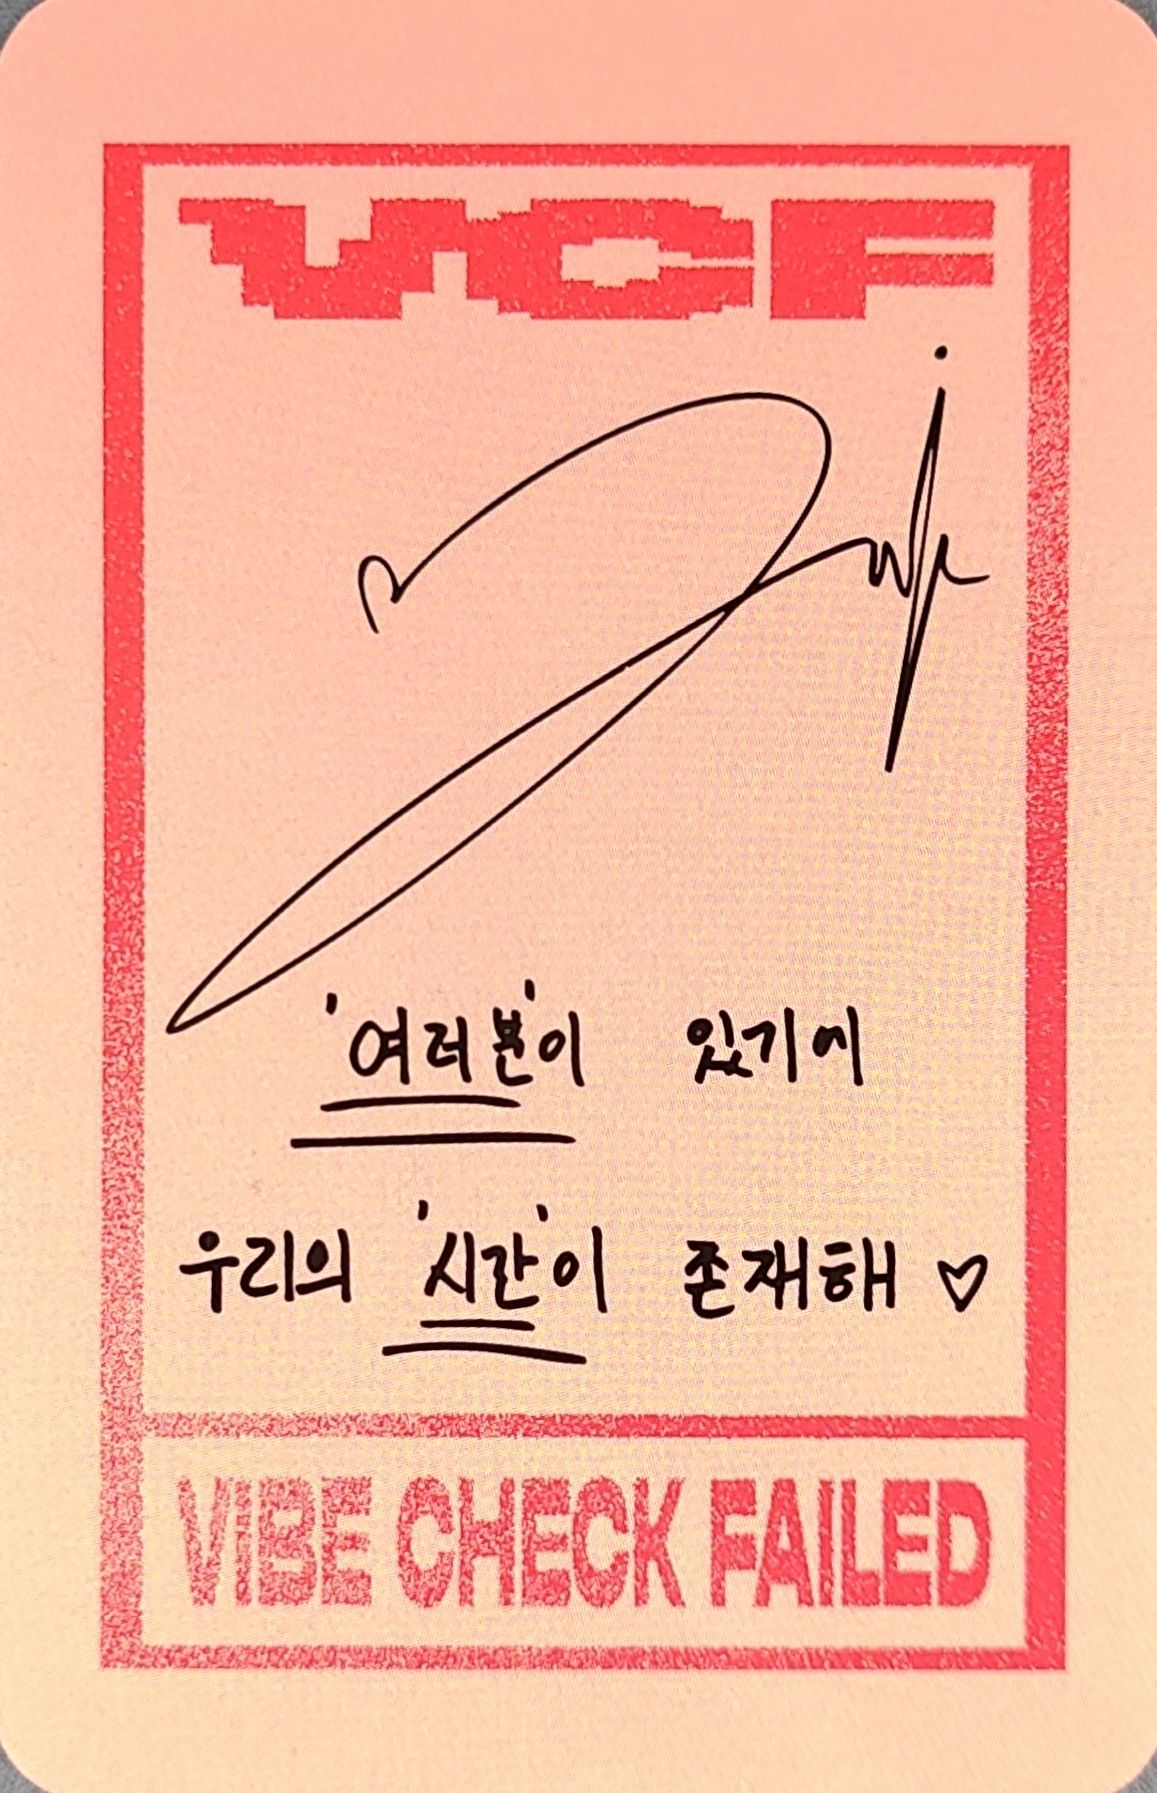 VCF
'여러분'이 있기에
우리의 '시간'이 존재해 ♡
VIBE CHECK FAILED